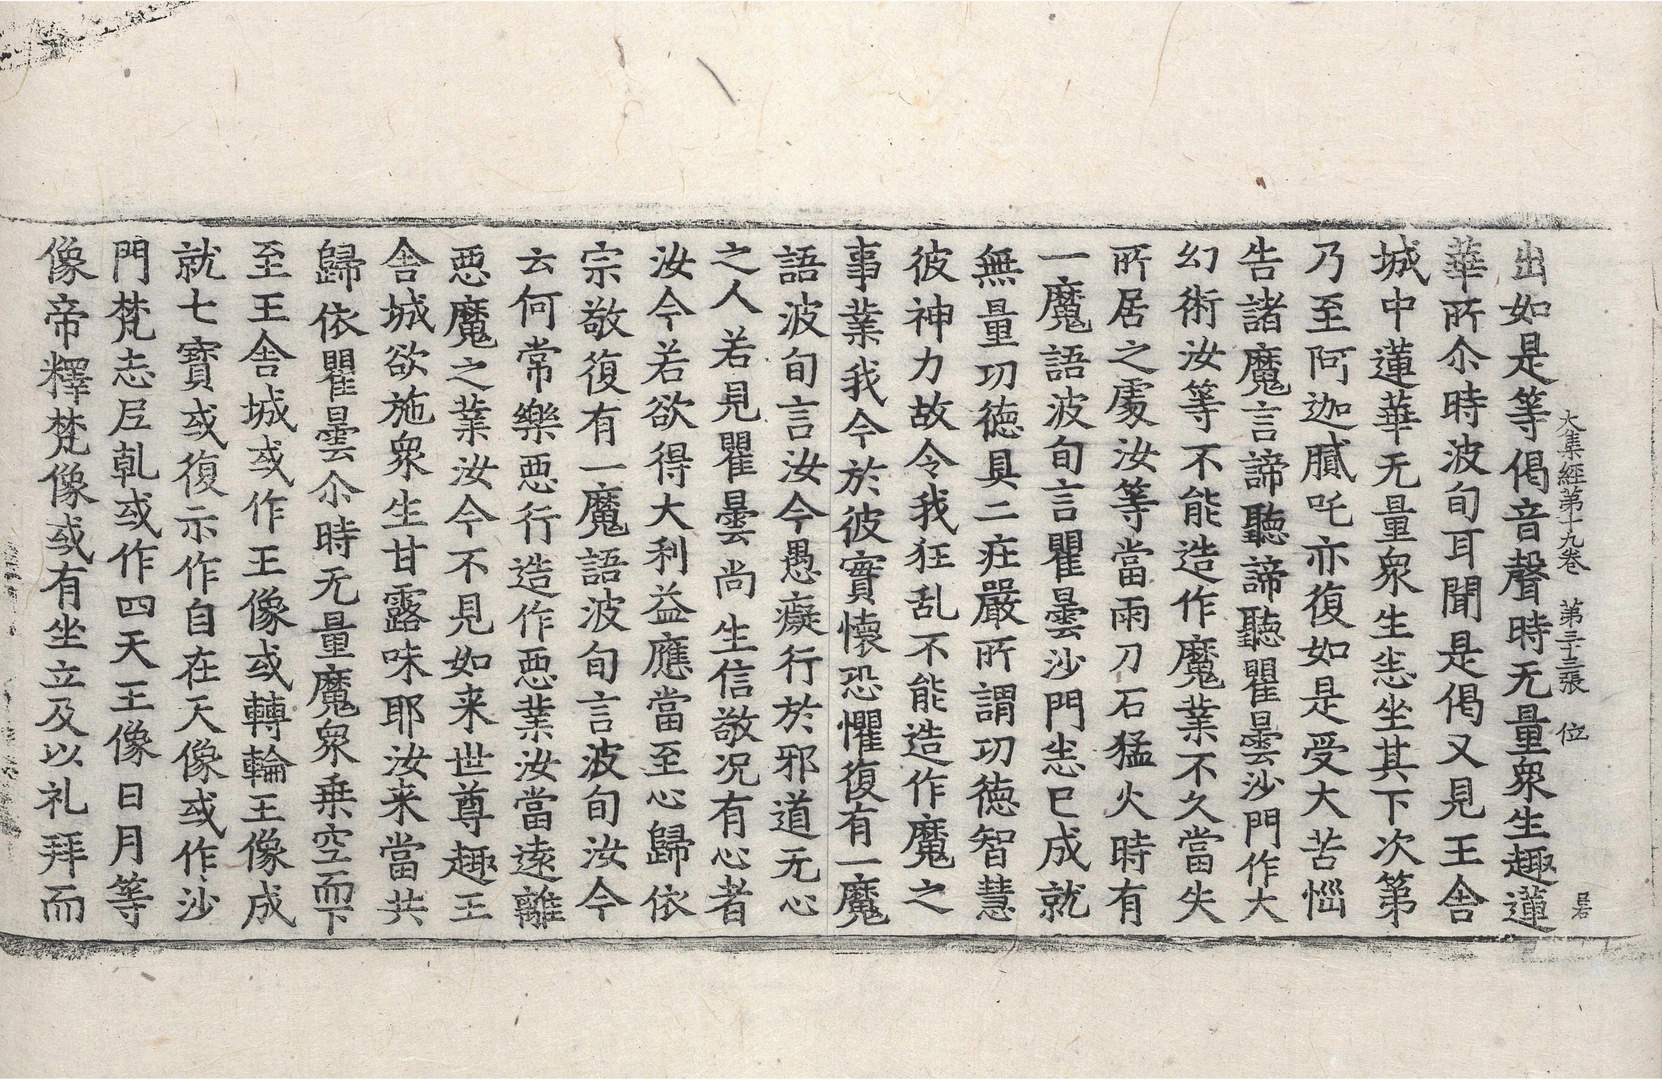 大集經第十九卷 第三十二張 位
出如是等偈音聲時无量衆生趣蓮
華所尒時波旬耳聞是偈又見王舍
城中蓮華无量衆生悉坐其下次第
乃至阿迦膩吒亦復如是受大苦惱
告諸魔言諦聽諦聽瞿曇沙門作大
幻術汝等不能造作魔業不久當失
所居之處汝等當雨刀石猛火時有
一魔語波旬言瞿曇沙門悉已成就
無量功德具二莊嚴所謂功德智慧
彼神力故令我狂乱不能造作魔之
事業我今於彼實懷恐懼復有一魔
語波旬言汝今愚癡行於邪道无心
之人若見瞿曇尚生信敬况有心者
汝今若欲得大利益應當至心歸依
宗敬復有一魔語波旬言波旬汝今
云何常樂惡行造作惡業汝當遠離
惡魔之業汝今不見如来世尊趣王
舍城欲施衆生甘露味耶汝来當共
歸依瞿曇尒時无量魔衆乘空而下
至王舍城或作王像或轉輪王像成
就七寶或復示作自在天像或作沙
門梵志尼乹或作四天王像日月等
像帝釋梵像或有坐立及以礼拜而